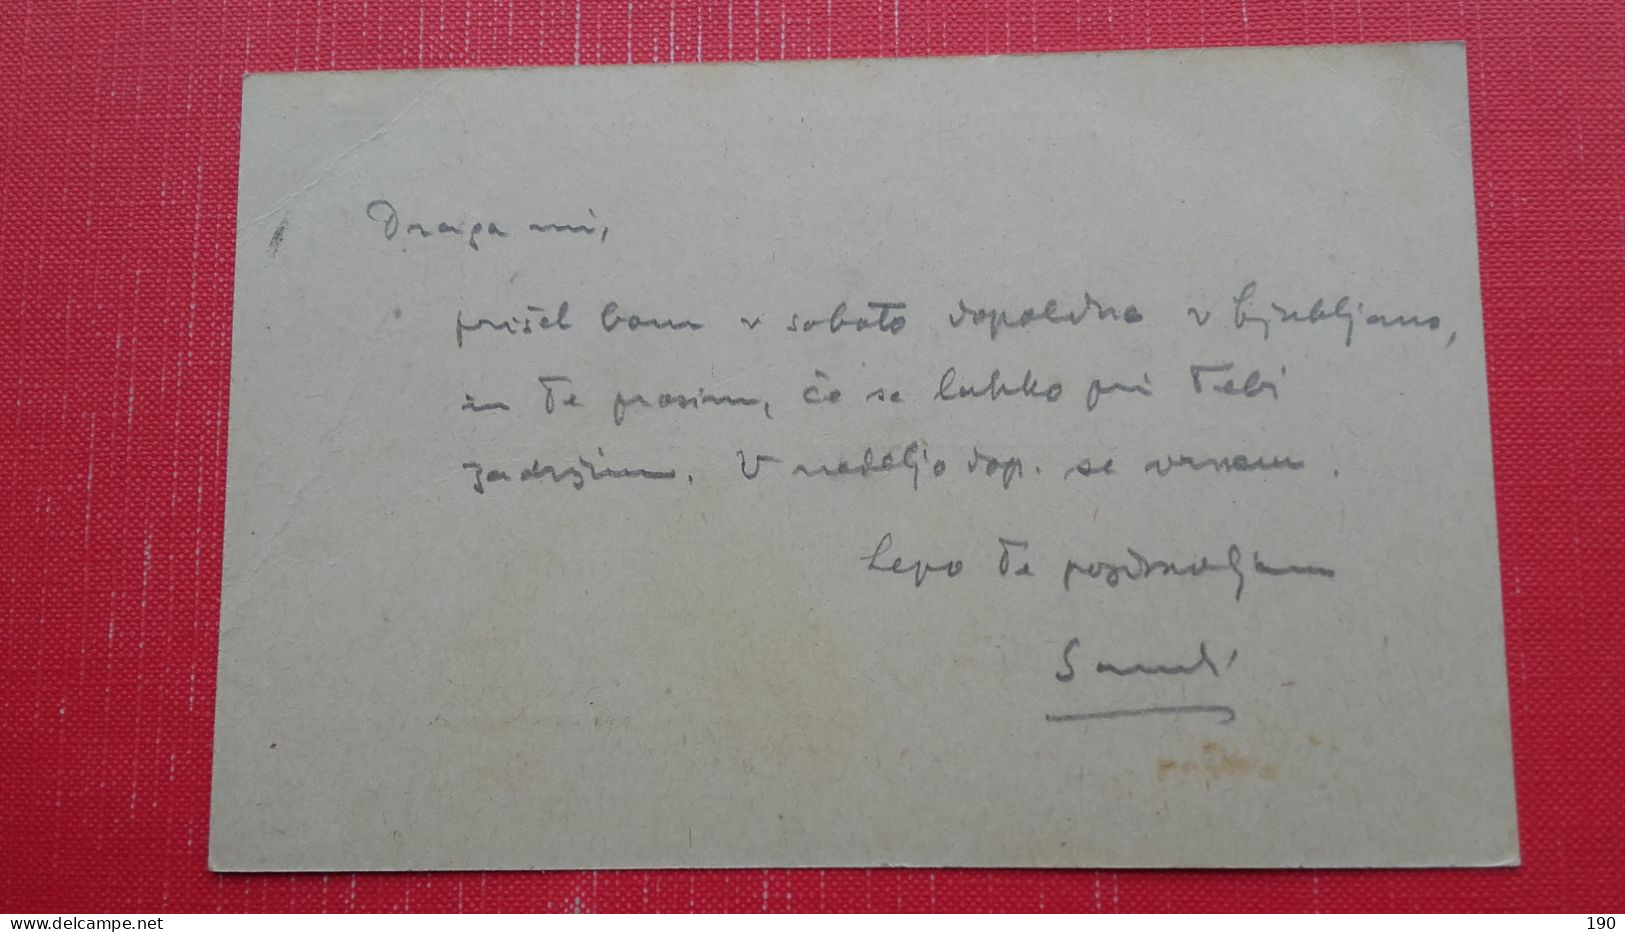 Draga mi,
prišel bom v soboto dopoldne v Ljubljano,
in Te prosim, če se lahko pri Tebi
zadržim. V nedeljo dop. se vrnem.
Lepo Te pozdravljam
Sandi
www.delcampe.net
190